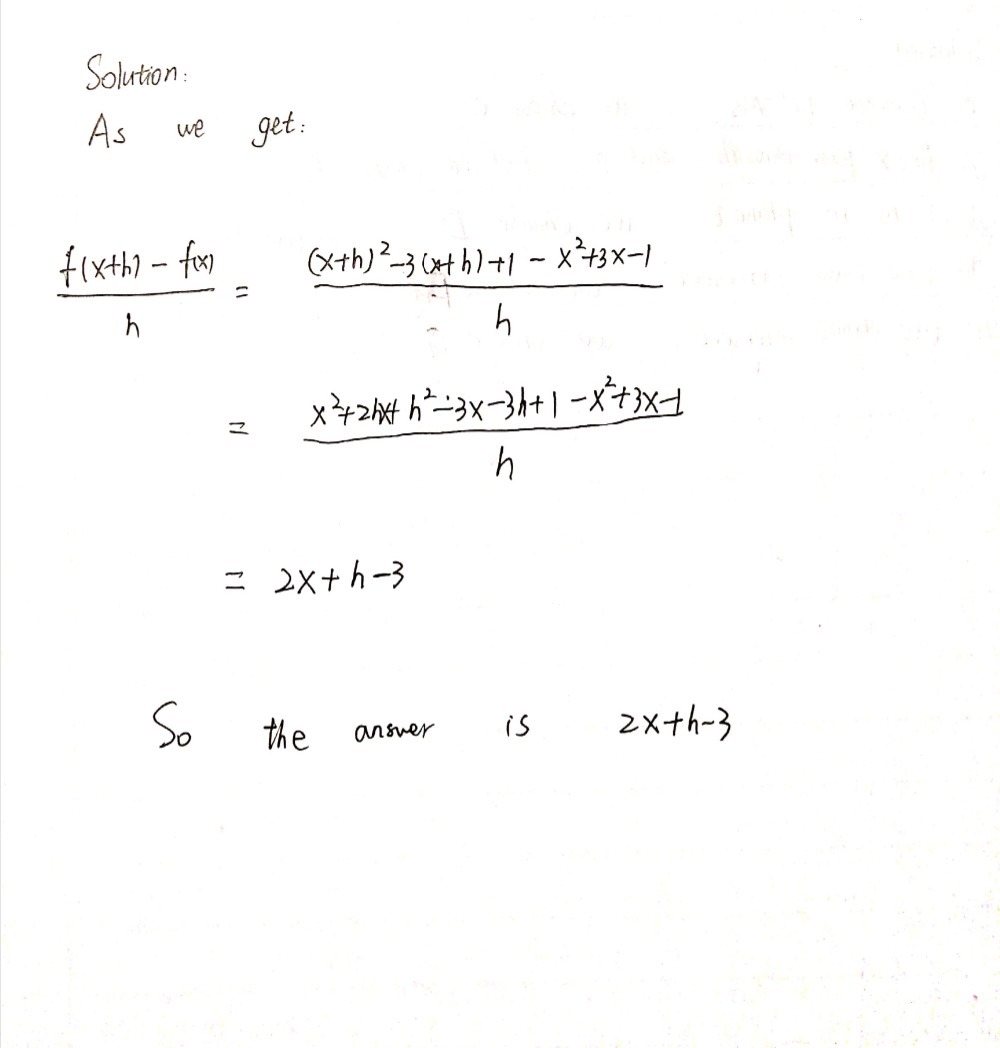 Solution:
As we get:
f(x+h) - f(x) / h = (x+h)²-3(x+h)+1 - x²+3x-1 / h
= x²+2hx+h²-3x-3h+1-x²+3x-1 / h
= 2x+h-3
So the answer is 2x+h-3